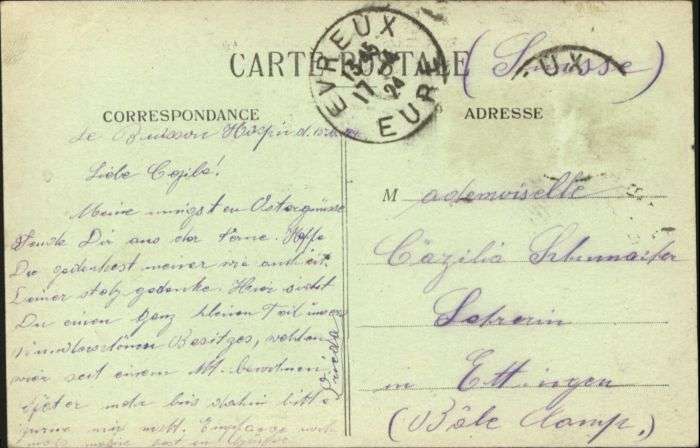 CARTE POSTALE
(Suisse)
EVREUX
17
24
EURE
UX
CORRESPONDANCE
ADRESSE
Le Buisson Hospin d.
Liebe Cäzilia!
Meine innigsten Ostergrüsse
sende Dir aus der Ferne. Hoffe
Du gedenkest meiner wie auch ich
Deiner stets gedenke. Hier siehst
Du einen ganz kleinen Teil unseres
wunderschönen Besitzes, welchen
wir seit einem Mt. bewohnen.
Später mehr bis dahin bitte
zürne mir nicht. Empfange noch
Frieda
M ademoiselle
Cäzilia Schumacher
Lehrerin
in Ettingen
(Bâle Camp.)